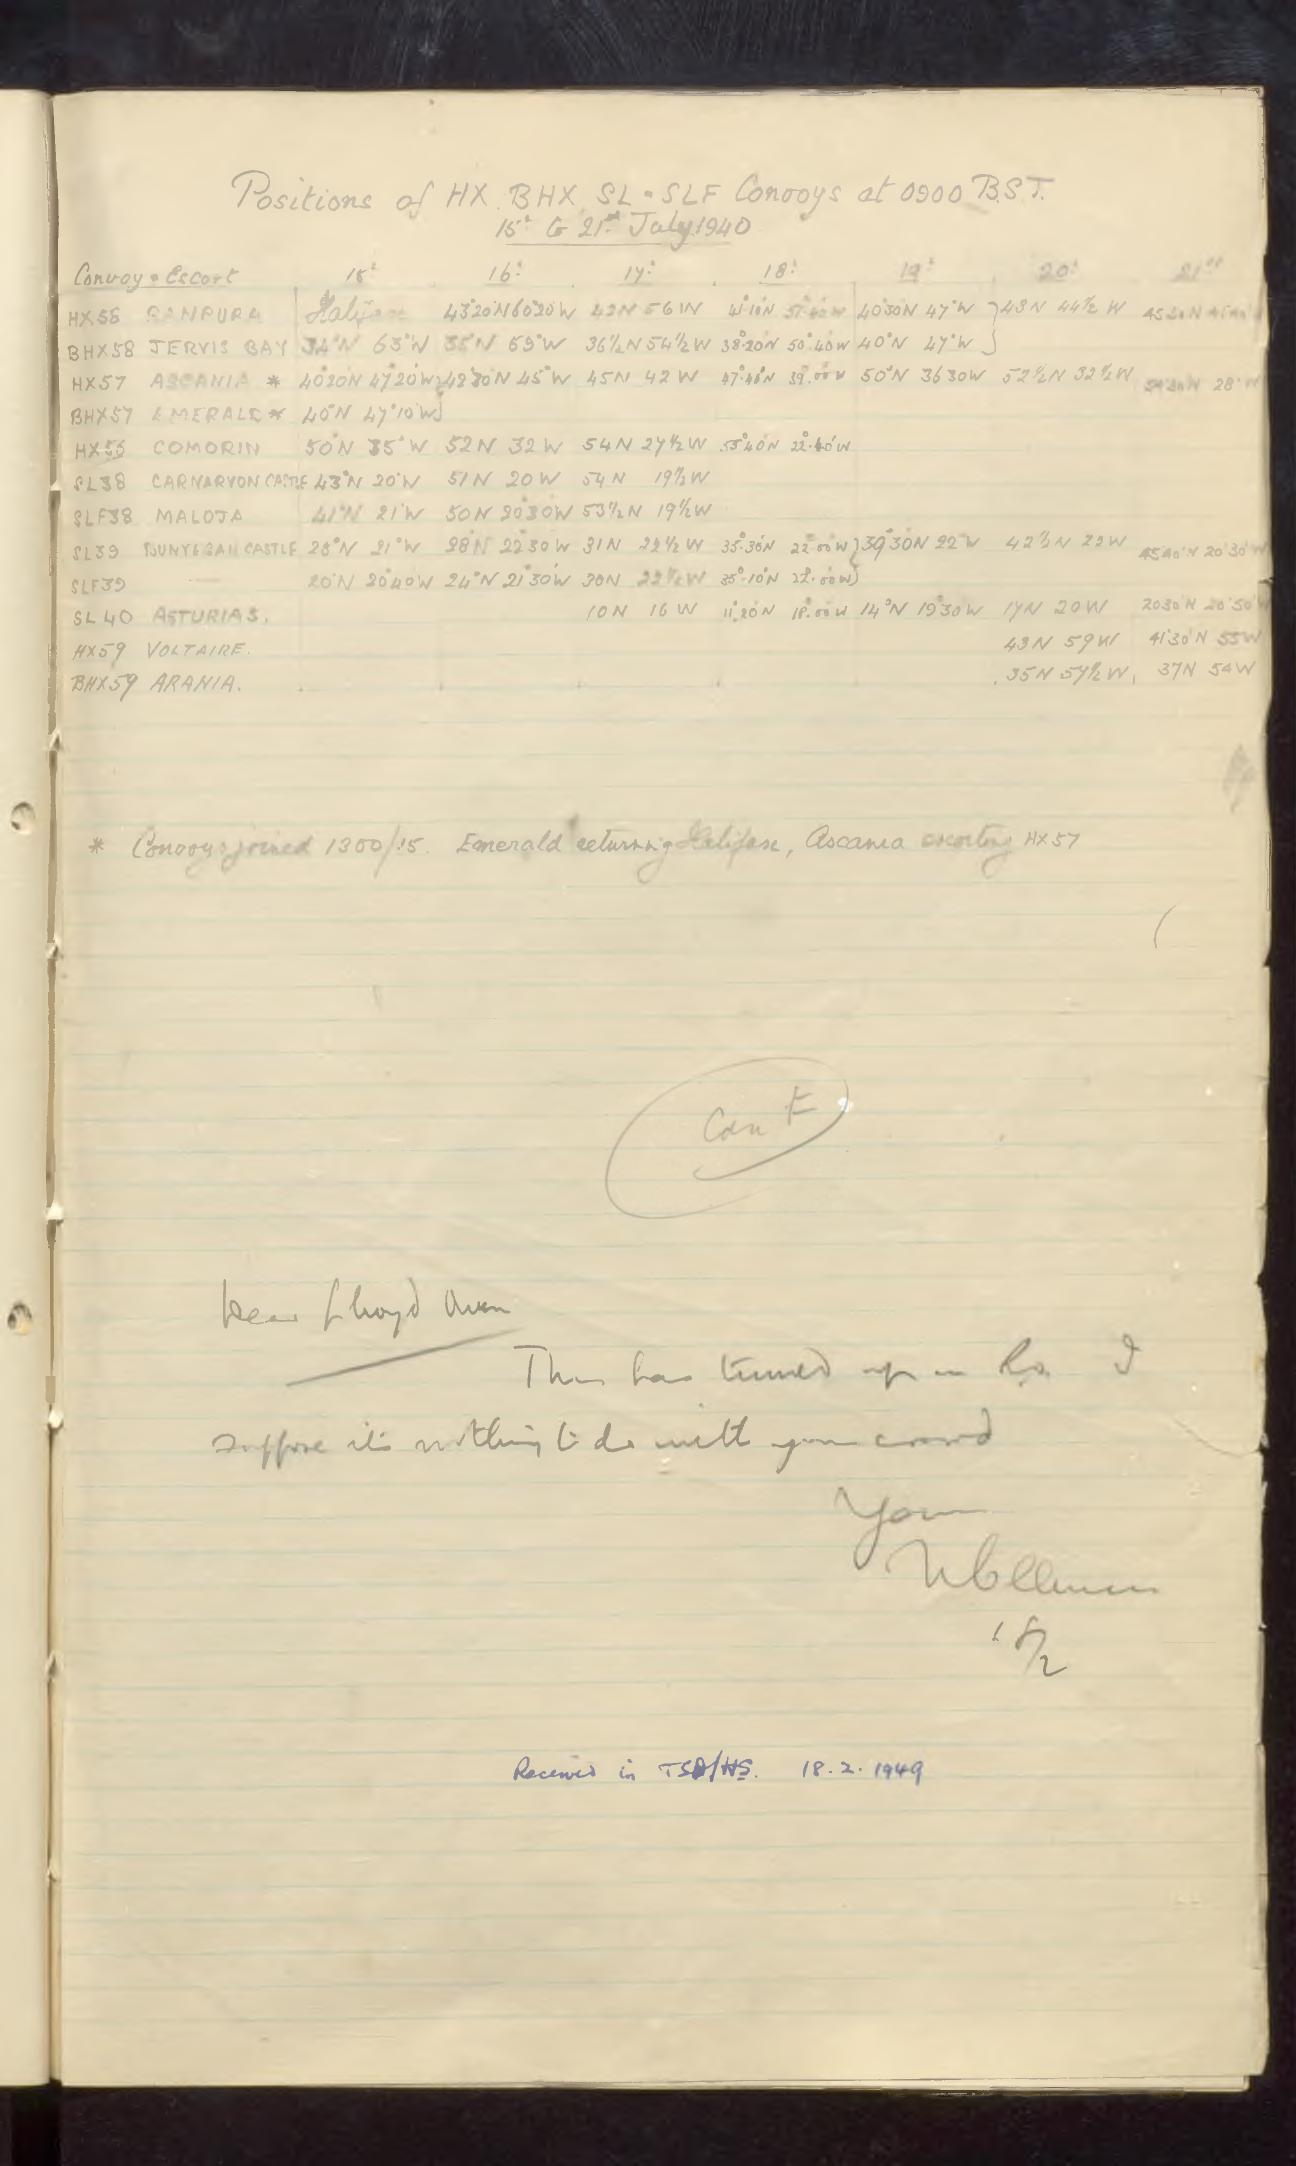 Positions of HX BHX SL & SLF Convoys at 0900 B.S.T.
15th to 21st July 1940
Convoy & Escort 15th 16th 17th 18th 19th 20th 21st
HX58 RANPURA Halifax 43°20N 60°20W 42N 56W 41°10'N 40°30N 47°W } 43N 44½W
BHX58 JERVIS BAY 34°N 63°W 35°N 59°W 36½N 54½W 38°20N 50°40W 40°N 47°W }
HX57 ASCANIA * 40°20N 47°20W } 42°30N 45°W 45N 42W 47°40'N 39°00W 50°N 36 30W 52½N 32½W 28°W
BHX57 EMERALD * 40°N 47°10W }
HX56 COMORIN 50°N 35°W 52N 32W 54N 27½W 55°40'N 22°40'W
SL38 CARNARVON CASTLE 43°N 20°W 51N 20W 54N 19½W
SLF38 MALOJA 41°N 21°W 50N 20°30W 53½N 19½W
SL39 DUNVEGAN CASTLE 28°N 22°30W 31N 22½W 35°30N 22°00W } 39°30N 22°W 42½N 22W 45°40'N 20°30'W
SLF39 20°N 20°40W 24°N 21°30W 30N 22½W 35°10N 22°00W }
SL40 ASTURIAS. 10N 16W 11°20N 18°00W 14°N 19°30W 17N 20W 20°30'N 20°50'W
HX59 VOLTAIRE. 43N 59W 41°30'N 55W
BHX59 ARANIA. 35N 57½W 37N 54W
* Convoys joined 1300/15. Emerald returning Halifax, Ascania escorting HX57
Con E
Dear Lloyd Owen
This has turned up in I
suppose it's nothing to do with your crowd
Yours
18/2
Received in TSD/HS. 18.2.1949